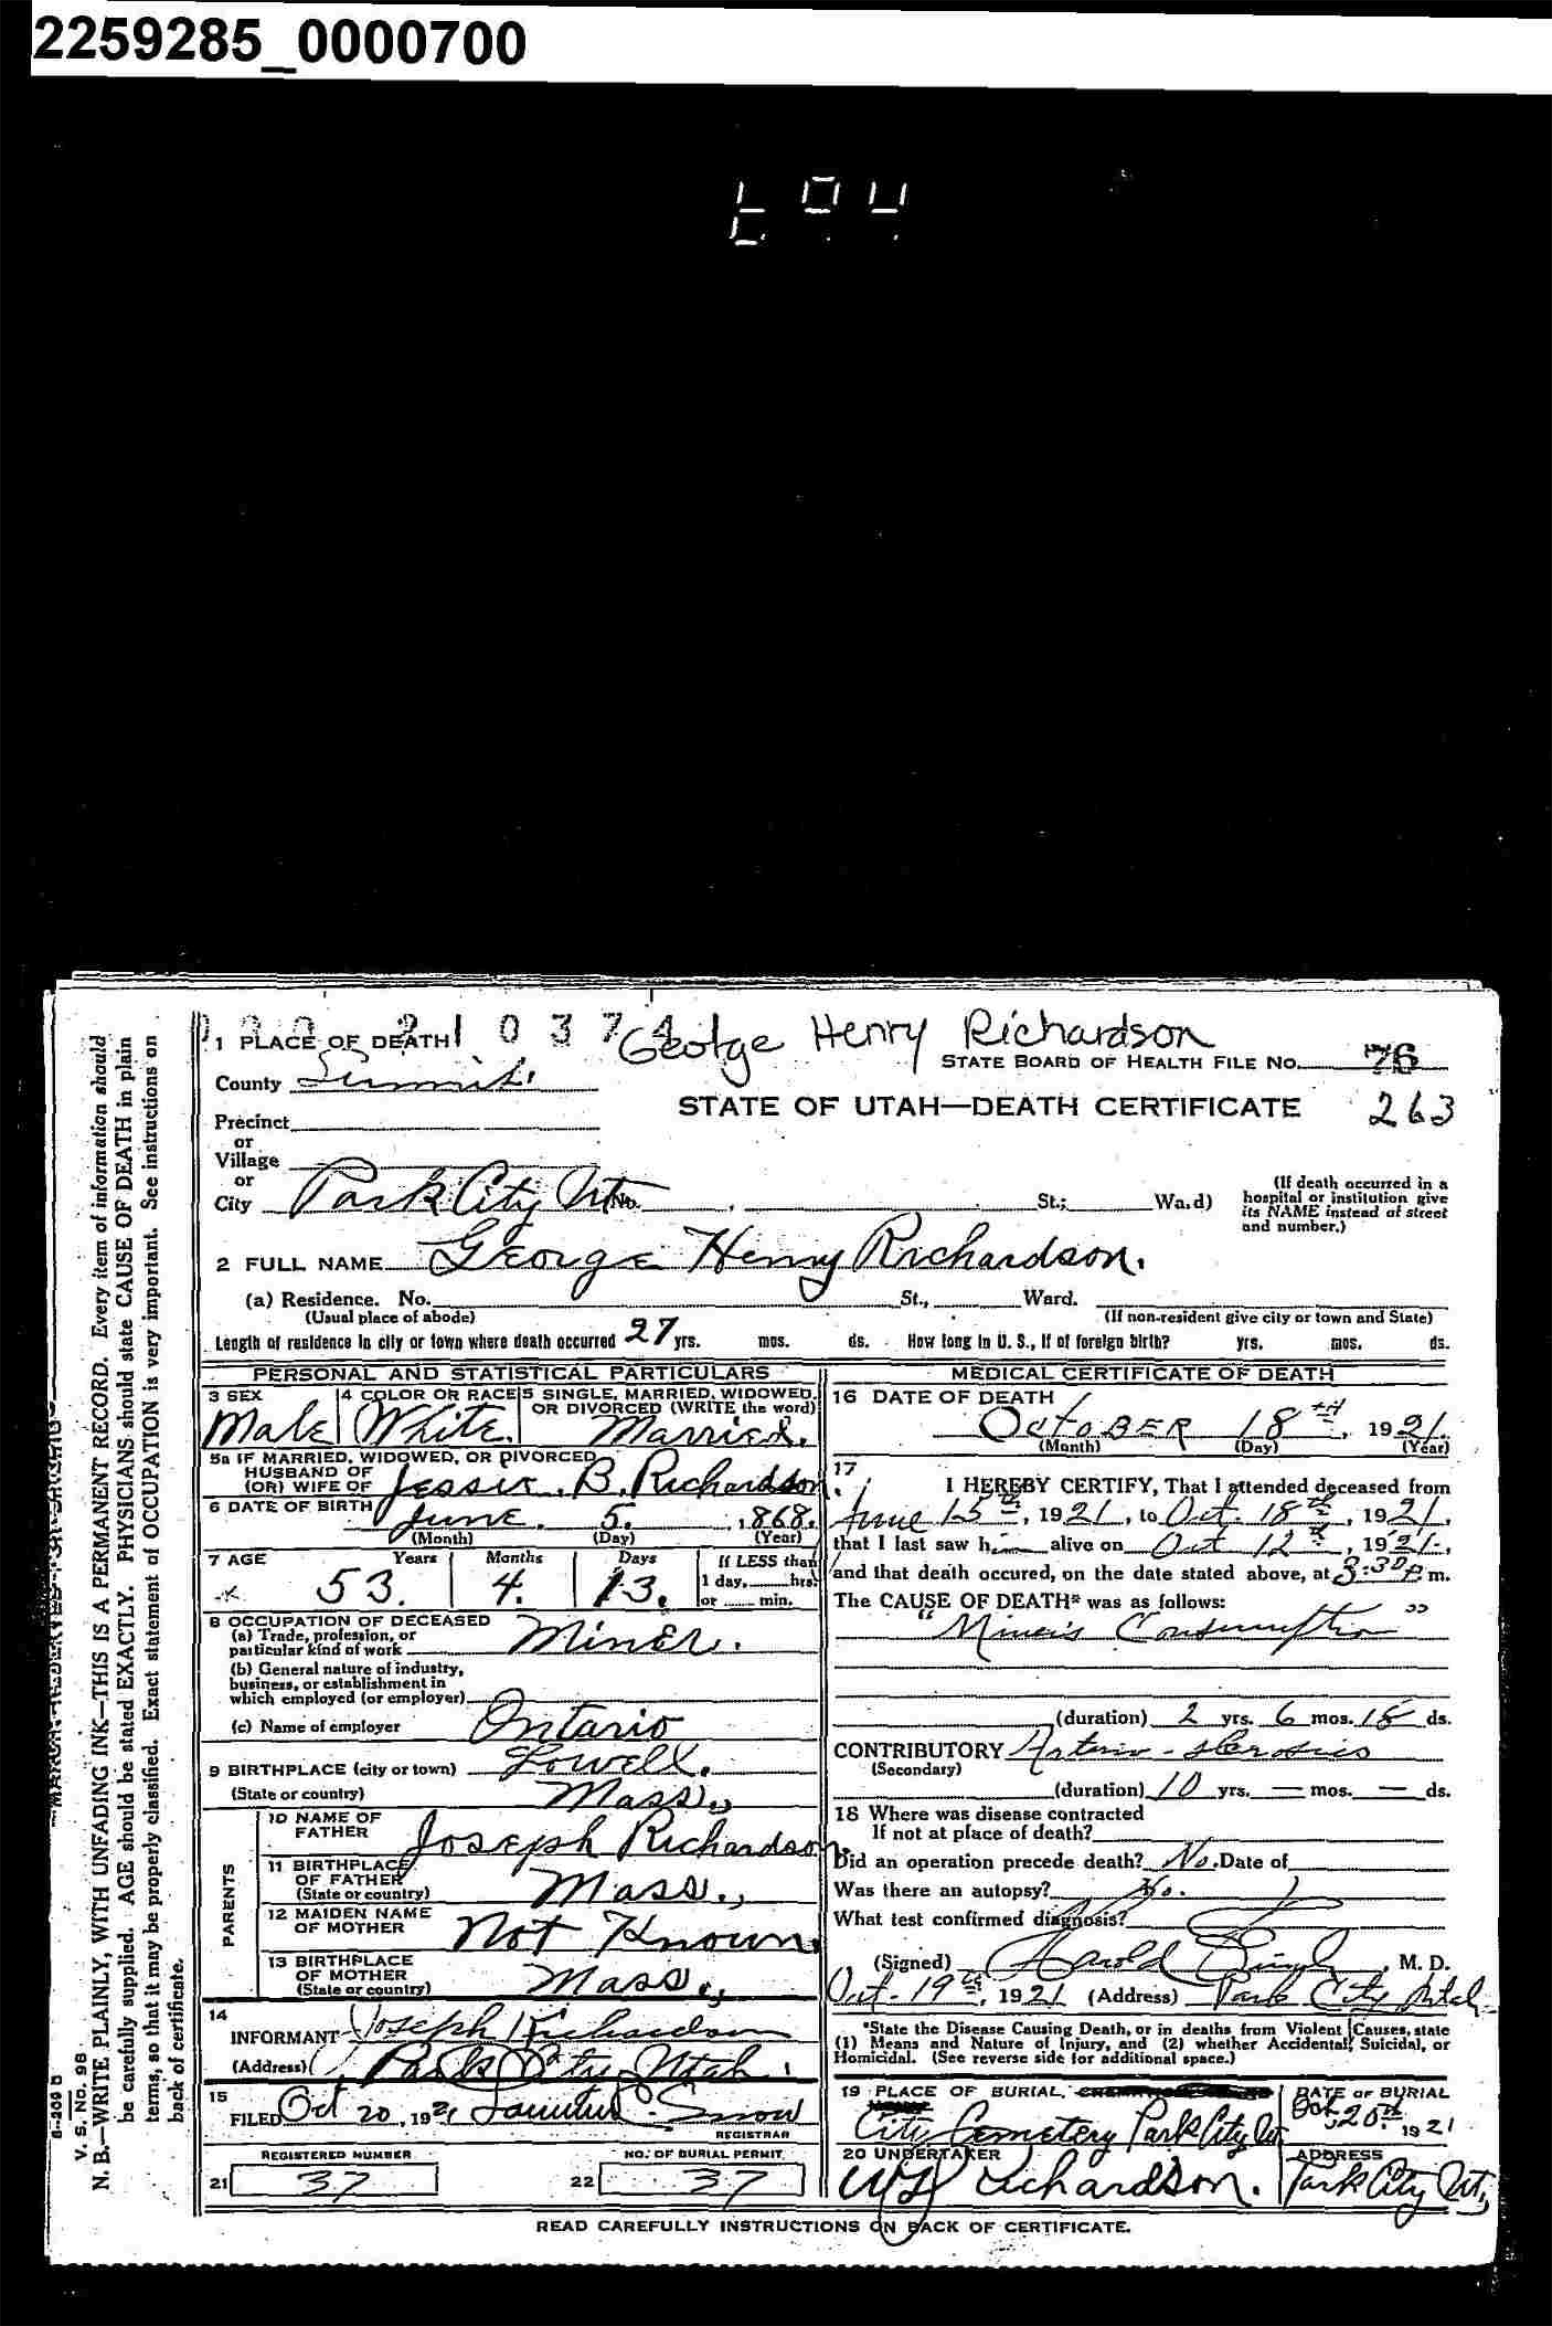 2259285_0000700
1 PLACE OF DEATH
George Henry Richardson
STATE BOARD OF HEALTH FILE No. 76
County Summit
STATE OF UTAH—DEATH CERTIFICATE 263
Precinct
or
Village
or
City Park City Ut No. St.; Ward)
(If death occurred in a
hospital or institution give
its NAME instead of street
and number.)
2 FULL NAME George Henry Richardson.
(a) Residence. No. St., Ward.
(Usual place of abode) (If non-resident give city or town and State)
Length of residence in city or town where death occurred 27 yrs. mos. ds. How long in U. S., if of foreign birth? yrs. mos. ds.
PERSONAL AND STATISTICAL PARTICULARS
3 SEX 4 COLOR OR RACE 5 SINGLE, MARRIED, WIDOWED,
OR DIVORCED (WRITE the word)
Male White. Married.
5a IF MARRIED, WIDOWED, OR DIVORCED
HUSBAND OF
(OR) WIFE OF Jessie. B. Richardson.
6 DATE OF BIRTH
June. 5. , 1868.
(Month) (Day) (Year)
7 AGE Years Months Days If LESS than
53. 4. 13. 1 day, hrs.
or min.
8 OCCUPATION OF DECEASED
(a) Trade, profession, or
particular kind of work Miner.
(b) General nature of industry,
business, or establishment in
which employed (or employer)
(c) Name of employer Ontario
9 BIRTHPLACE (city or town) Lowell.
(State or country) Mass.,
PARENTS
10 NAME OF
FATHER Joseph Richardson
11 BIRTHPLACE
OF FATHER
(State or country) Mass.,
12 MAIDEN NAME
OF MOTHER Not Known
13 BIRTHPLACE
OF MOTHER
(State or country) Mass.,
14
INFORMANT Joseph Richardson
(Address) Park City Utah.
15
FILED Oct 20, 1921 Snow
REGISTRAR
REGISTERED NUMBER NO. OF BURIAL PERMIT.
21 37 22 37
MEDICAL CERTIFICATE OF DEATH
16 DATE OF DEATH
OctoBER 18th, 1921.
(Month) (Day) (Year)
17
I HEREBY CERTIFY, That I attended deceased from
June 15th, 1921, to Oct. 18th, 1921,
that I last saw him alive on Oct 12th, 1921,
and that death occured, on the date stated above, at 3:30 P. m.
The CAUSE OF DEATH* was as follows:
"Miner's Consumption"
(duration) 2 yrs. 6 mos. 18 ds.
CONTRIBUTORY Arterio-sclerosis
(Secondary)
(duration) 10 yrs. — mos. — ds.
18 Where was disease contracted
If not at place of death?
Did an operation precede death? No. Date of
Was there an autopsy? No.
What test confirmed diagnosis?
(Signed) Harold , M. D.
Oct. 19th, 1921 (Address) Park City Utah
*State the Disease Causing Death, or in deaths from Violent Causes, state
(1) Means and Nature of Injury, and (2) whether Accidental, Suicidal, or
Homicidal. (See reverse side for additional space.)
19 PLACE OF BURIAL, DATE OF BURIAL
City Cemetery Park City Ut. Oct 20th 1921
20 UNDERTAKER ADDRESS
Richardson. Park City Ut,
READ CAREFULLY INSTRUCTIONS ON BACK OF CERTIFICATE.
V. S. No. 98
N. B.—WRITE PLAINLY, WITH UNFADING INK—THIS IS A PERMANENT RECORD. Every item of information should
be carefully supplied. AGE should be stated EXACTLY. PHYSICIANS should state CAUSE OF DEATH in plain
terms, so that it may be properly classified. Exact statement of OCCUPATION is very important. See instructions on
back of certificate.